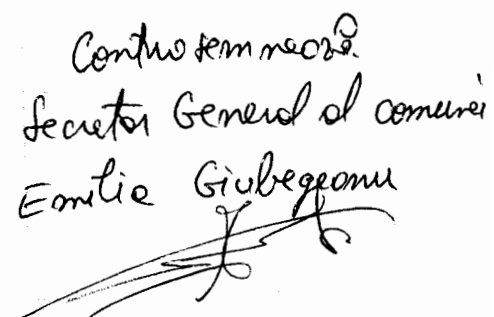 Contrasemnează.
Secretar General al comunei
Emilia Giubegeanu